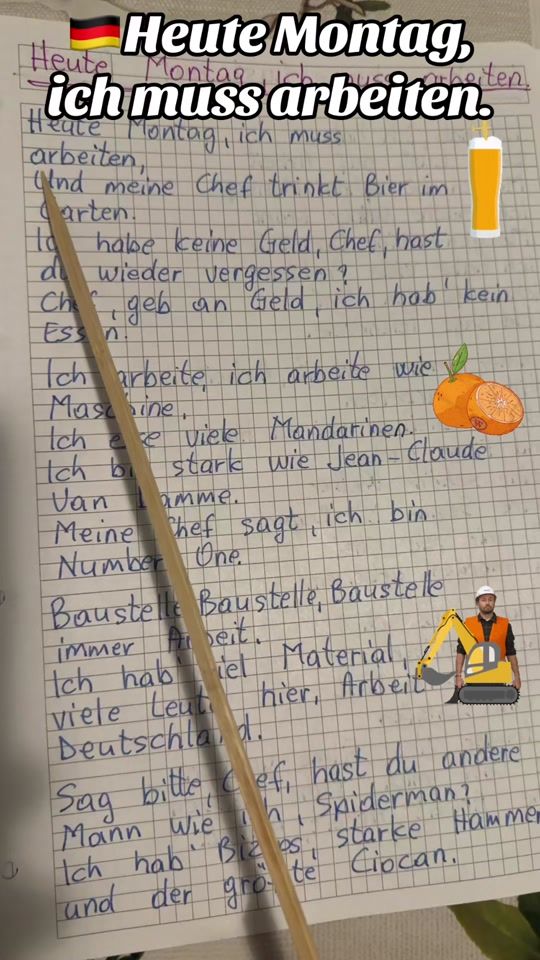 🇩🇪Heute Montag,
ich muss arbeiten.
Heute Montag, ich muss arbeiten.
Heute Montag, ich muss
arbeiten,
Und meine Chef trinkt Bier im
Garten.
Ich habe keine Geld, Chef, hast
du wieder vergessen?
Chef, geb an Geld, ich hab' kein
Essen.
Ich arbeite, ich arbeite wie
Maschine,
Ich esse viele Mandarinen.
Ich bin stark wie Jean-Claude
Van Damme.
Meine Chef sagt, ich bin
Number One.
Baustelle, Baustelle, Baustelle
immer Arbeit.
Ich hab' viel Material,
viele Leute hier, Arbeit
Deutschland.
Sag bitte, Chef, hast du andere
Mann wie ich, Spiderman?
Ich hab' Bizeps, starke Hammer
und der größte Ciocan.